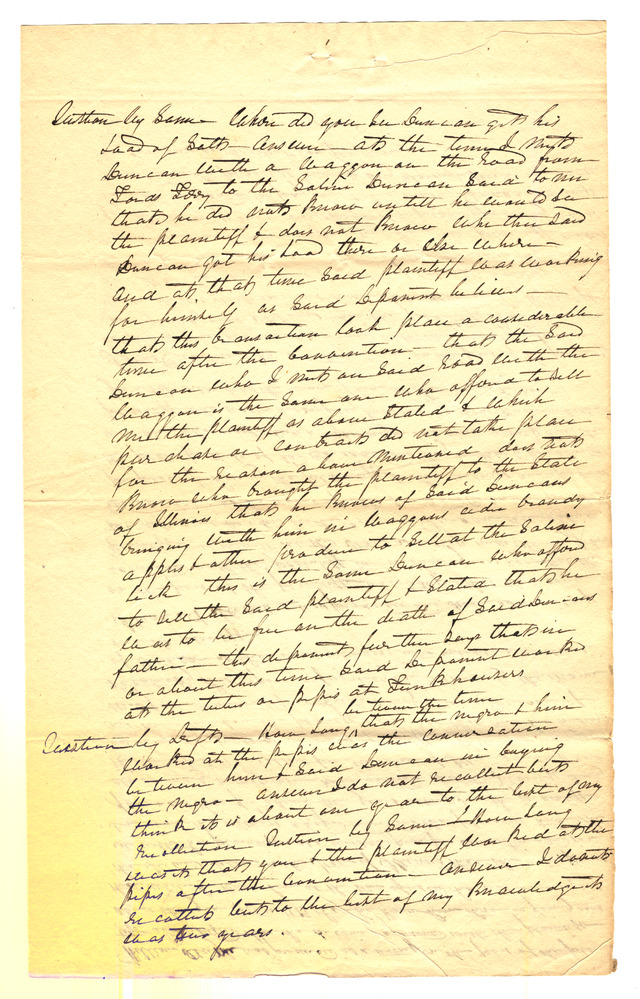 Question by Same - Where did you see Duncan get his
Load of Salt - Answer - at the time I met
Duncan with a Waggon on the Road from
Fords Ferry to the Saline Duncan Said to me
that he did not Know untill he would see
the plaintiff & does not Know whether Said
Duncan got his Load there or Else where -
and at that time Said plaintiff was working
for himself as Said Deponent believes -
that this transaction took place a considerable
time after the Convention - that the Said
Duncan who I met on Said Road with the
Waggon is the Same one who offered to Sell
me the plaintiff as above Stated & which
purchase or contract did not take place
for the reason above Mentioned does not
Know who brought the plaintiff to the State
of Illinois that he Knows of Said Duncans
bringing with him in Waggons cider brandy
apples & other produce to Sell at the Saline
Lick this is the Same Duncan who offered
to Sell the Said plaintiff & Stated that he
was to be free on the death of Said Duncans
father - this deponent further Says that in
or about this time Said Deponent worked
at the tubes or pipes at Funkhousers
between the time
Question by Deft - How Long that the negro & him
worked at the pipes was the conversation
between him & Said Duncan in buying
the negro - answer I do not recollect but
think it is about one year to the best of my
recollection Question by Same - How Long
was it that you & the plaintiff worked at the
pipes after the Convention - Answer I do not
recollect but to the best of my Knowledge it
was two years.